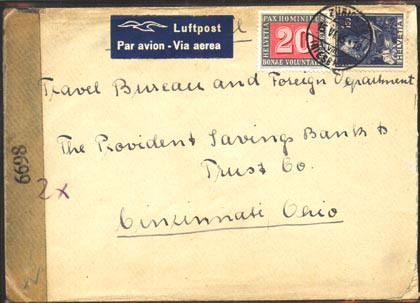 Luftpost
Par avion - Via aerea
HELVETIA
PAX HOMINIBUS
20
BONAE VOLUNTATIS
Travel Bureau and Foreign Department
The Provident Savings Bank &
Trust Co.
Cincinnati, Ohio
6698
2x